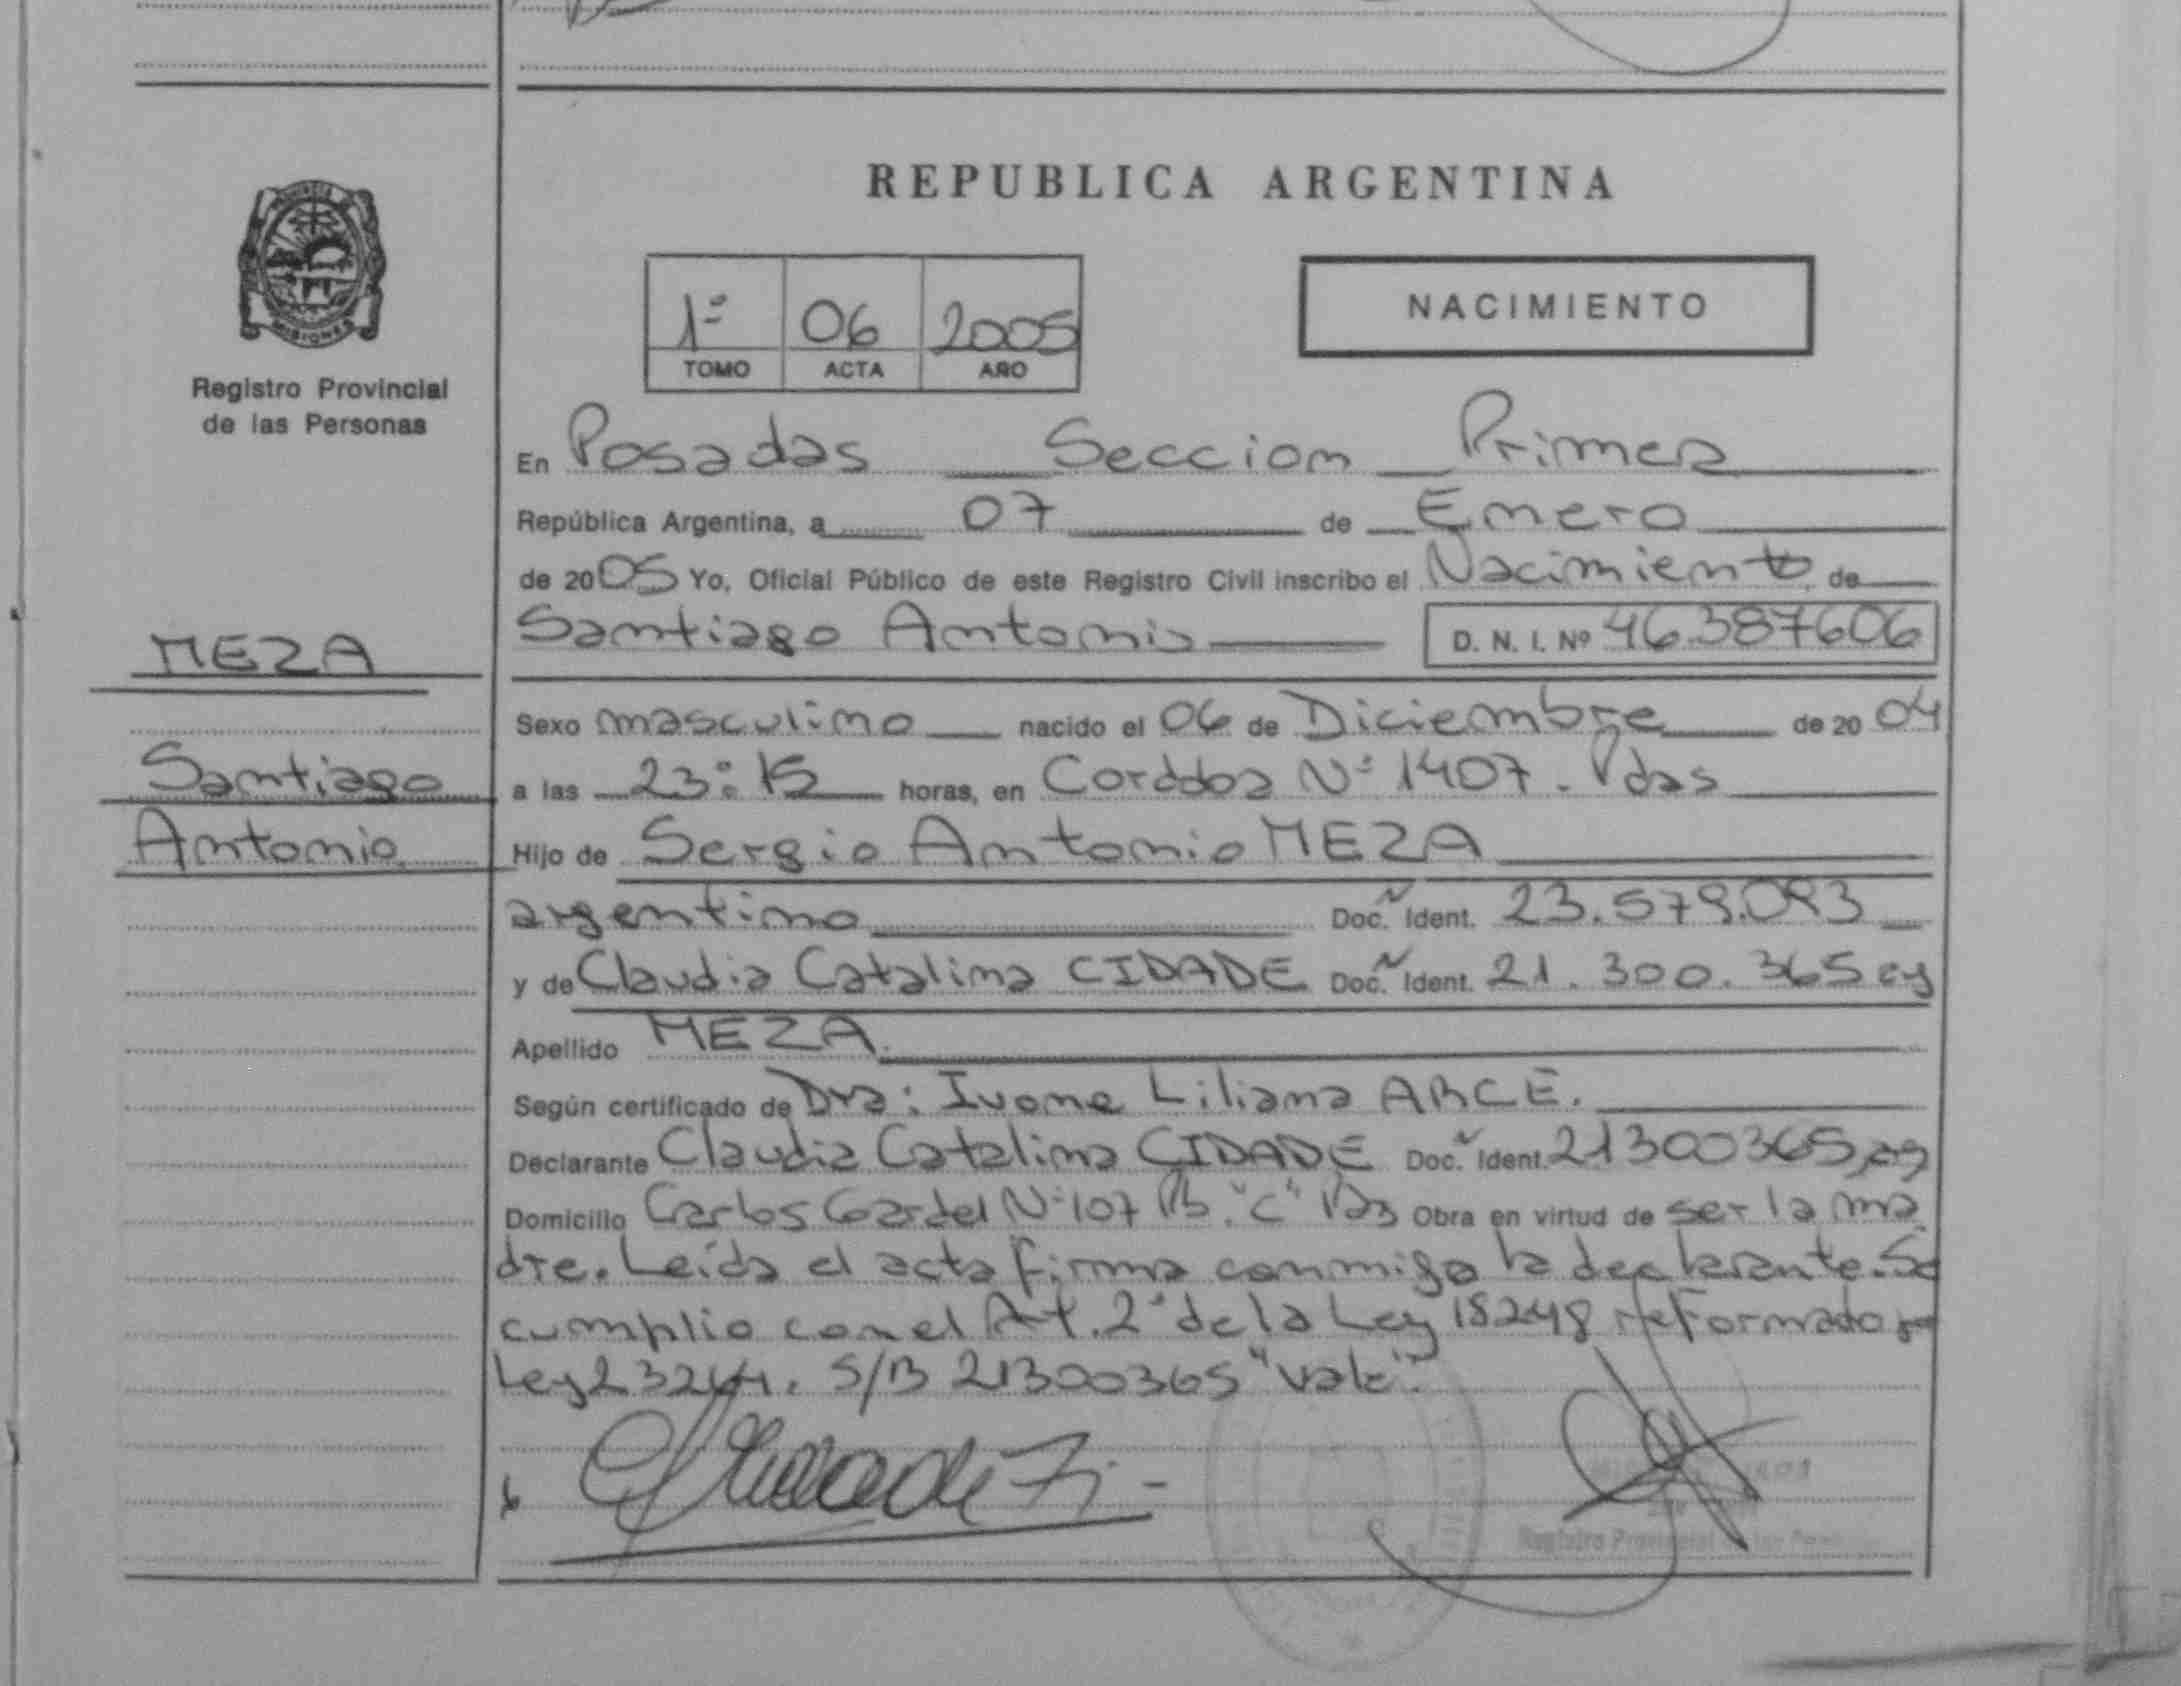 REPUBLICA ARGENTINA
MISIONES
Registro Provincial
de las Personas
1º 06 2005
TOMO ACTA AÑO
NACIMIENTO
En Posadas Seccion Primera
República Argentina, a 07 de Enero
de 2005 Yo, Oficial Público de este Registro Civil inscribo el Nacimiento de
Santiago Antonio D. N. I. Nº 46.387606
MEZA
Santiago
Antonio
Sexo masculino nacido el 06 de Diciembre de 2004
a las 23:15 horas, en Cordoba Nº 1407. Pdas
Hijo de Sergio Antonio MEZA
argentino Doc. Ident. 23.579.093
y de Claudia Catalina CIDADE Doc. Ident. 21.300.365 arg
Apellido MEZA.
Según certificado de Dra: Ivone Liliana ARCE.
Declarante Claudia Catalina CIDADE Doc. Ident. 21300365 arg
Domicilio Carlos Gardel Nº 107 Pb. "C" Pdas Obra en virtud de ser la ma
dre. Leída el acta firma conmigo la declarante. Se
cumplio con el Art. 2º de la Ley 18248 reformado por
Ley 23264. S/B 21300365 "Vale".
Registro Provincial de las Personas